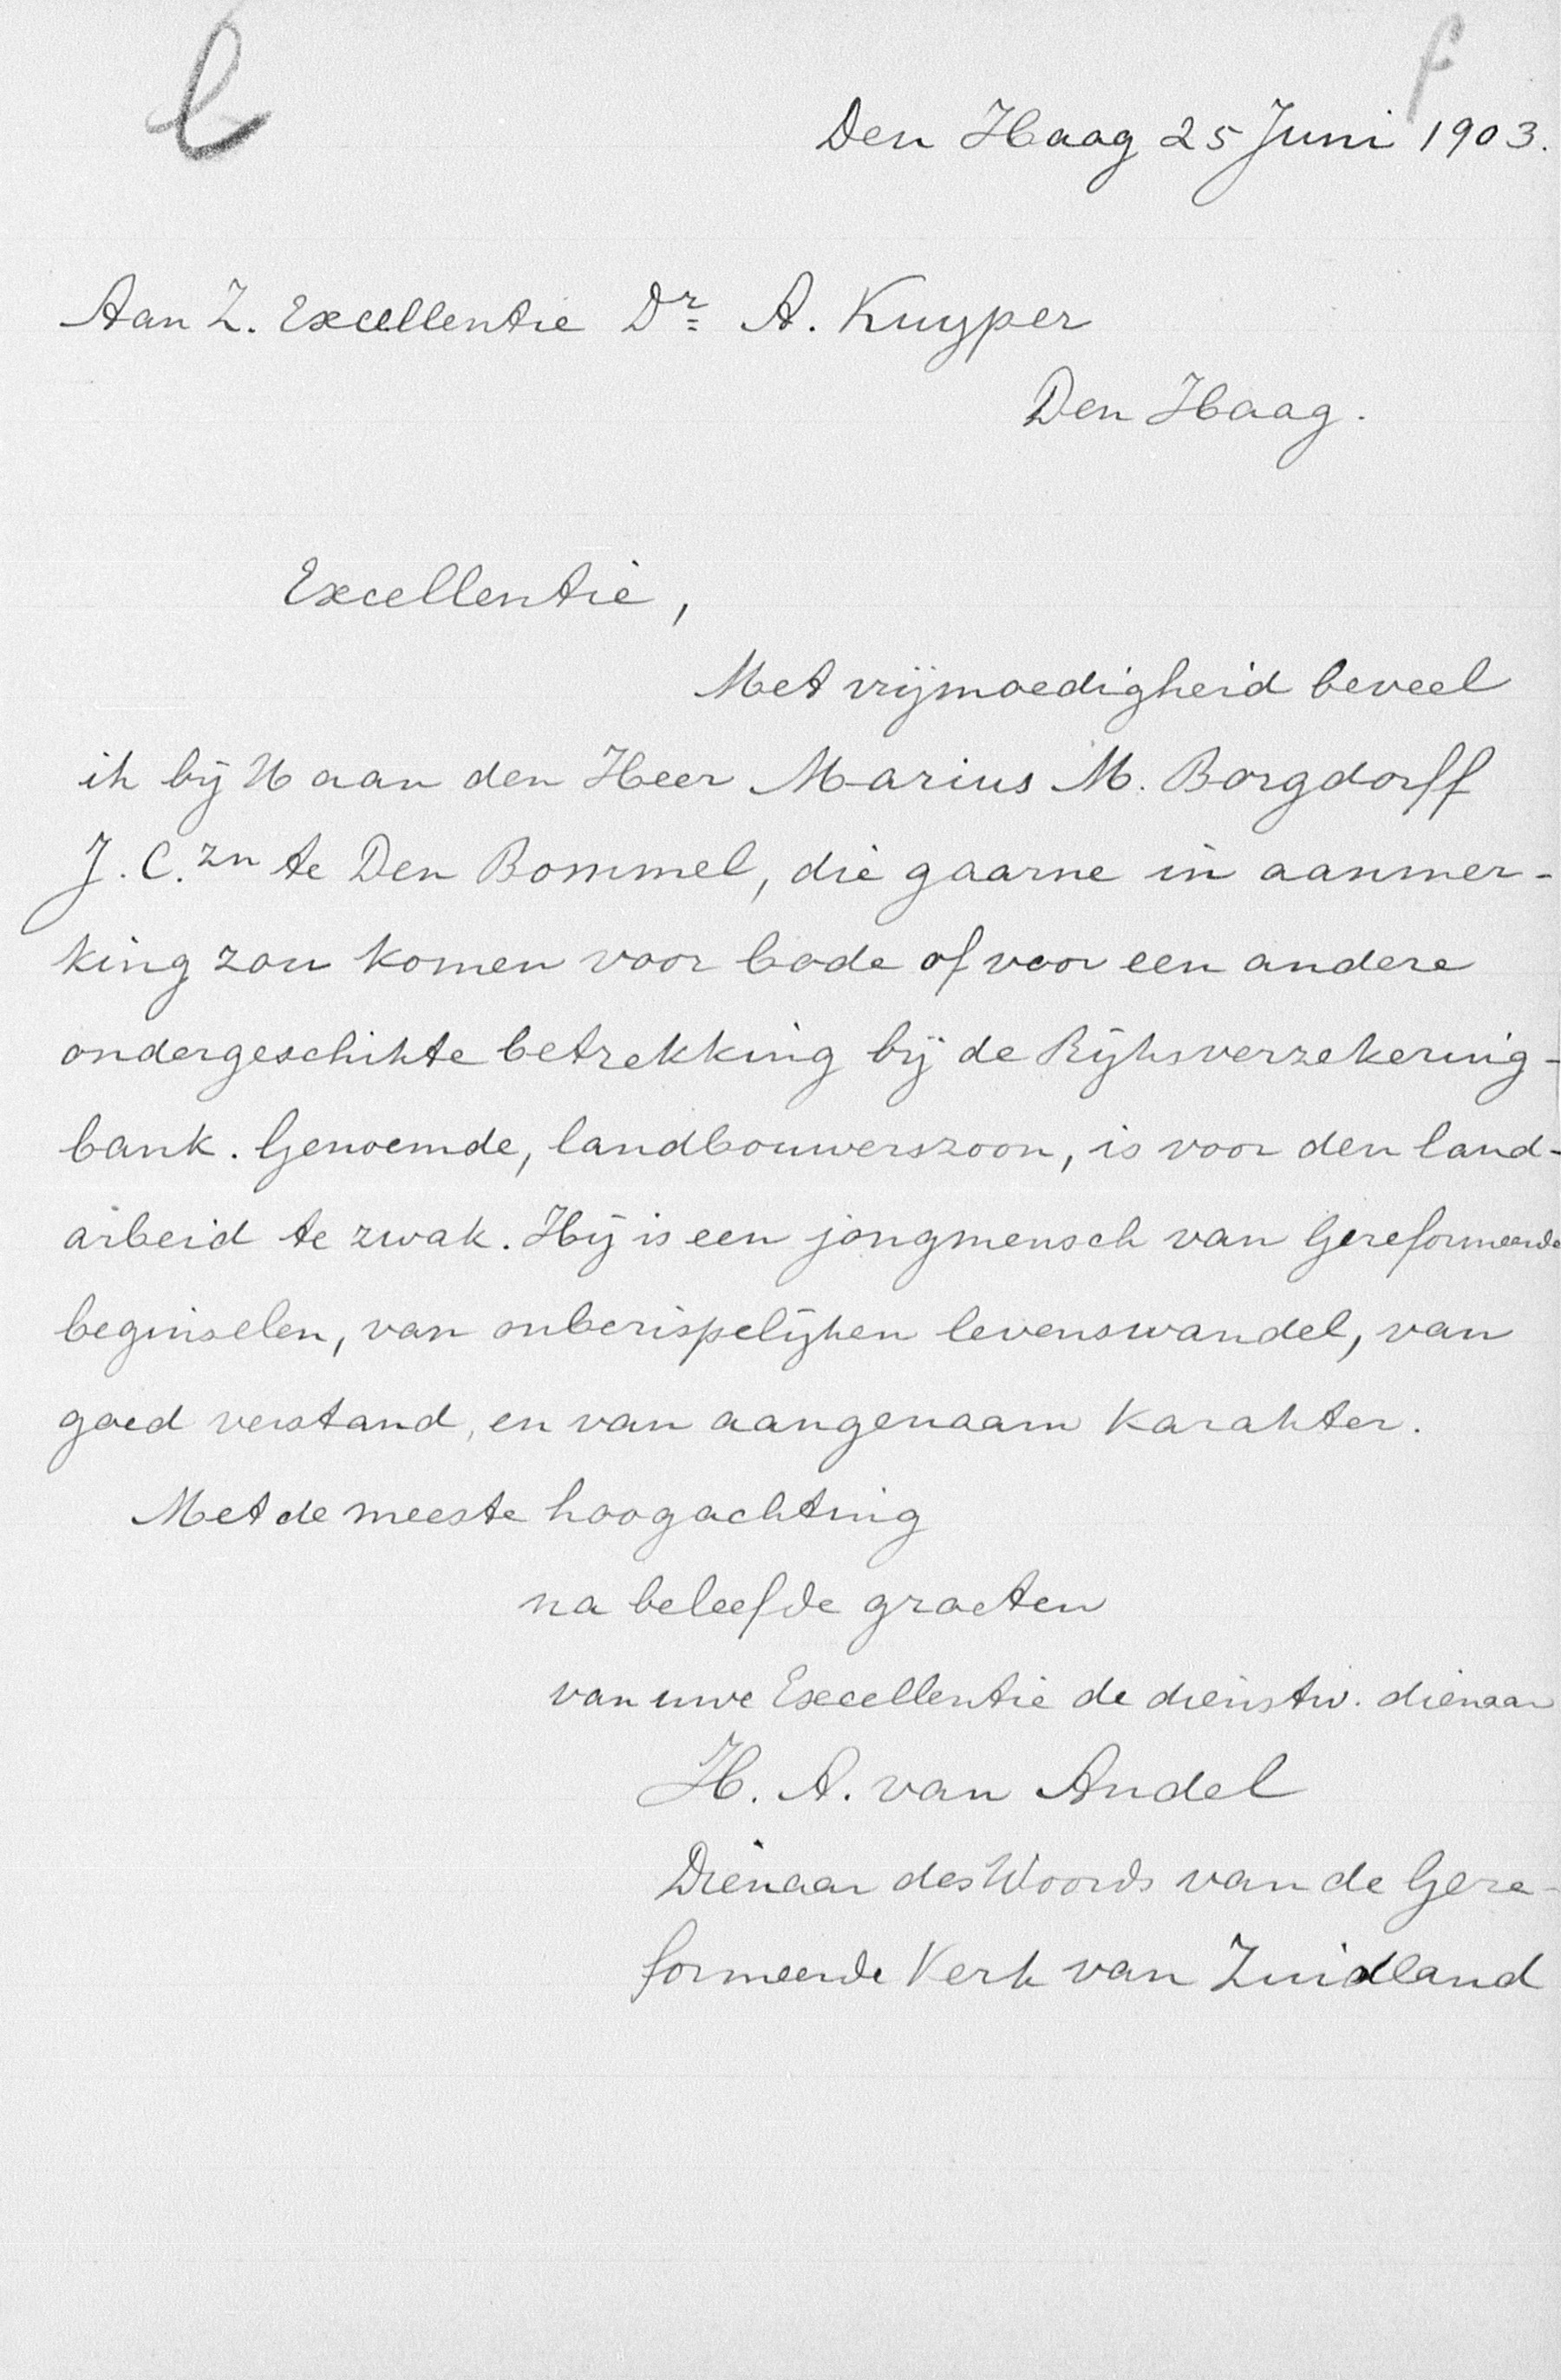 b
f
Den Haag 25 Juni 1903.
Aan Z. Excellentie Dr A. Kuyper
Den Haag.
Excellentie,
Met vrijmoedigheid beveel
ik bij U aan den Heer Marius M. Borgdorff
J. C.zn te Den Bommel, die gaarne in aanmer-
king zou komen voor bode of voor een andere
ondergeschikte betrekking bij de Rijksverzekering-
bank. Genoemde, landbouwerszoon, is voor den land-
arbeid te zwak. Hij is een jongmensch van Gereformeerde
beginselen, van onberispelijken levenswandel, van
goed verstand, en van aangenaam karakter.
Met de meeste hoogachting
na beleefde groeten
van uwe Excellentie de dienstw. dienaar
H. A. van Andel
Dienaar des Woords van de Gere-
formeerde Kerk van Zuidland